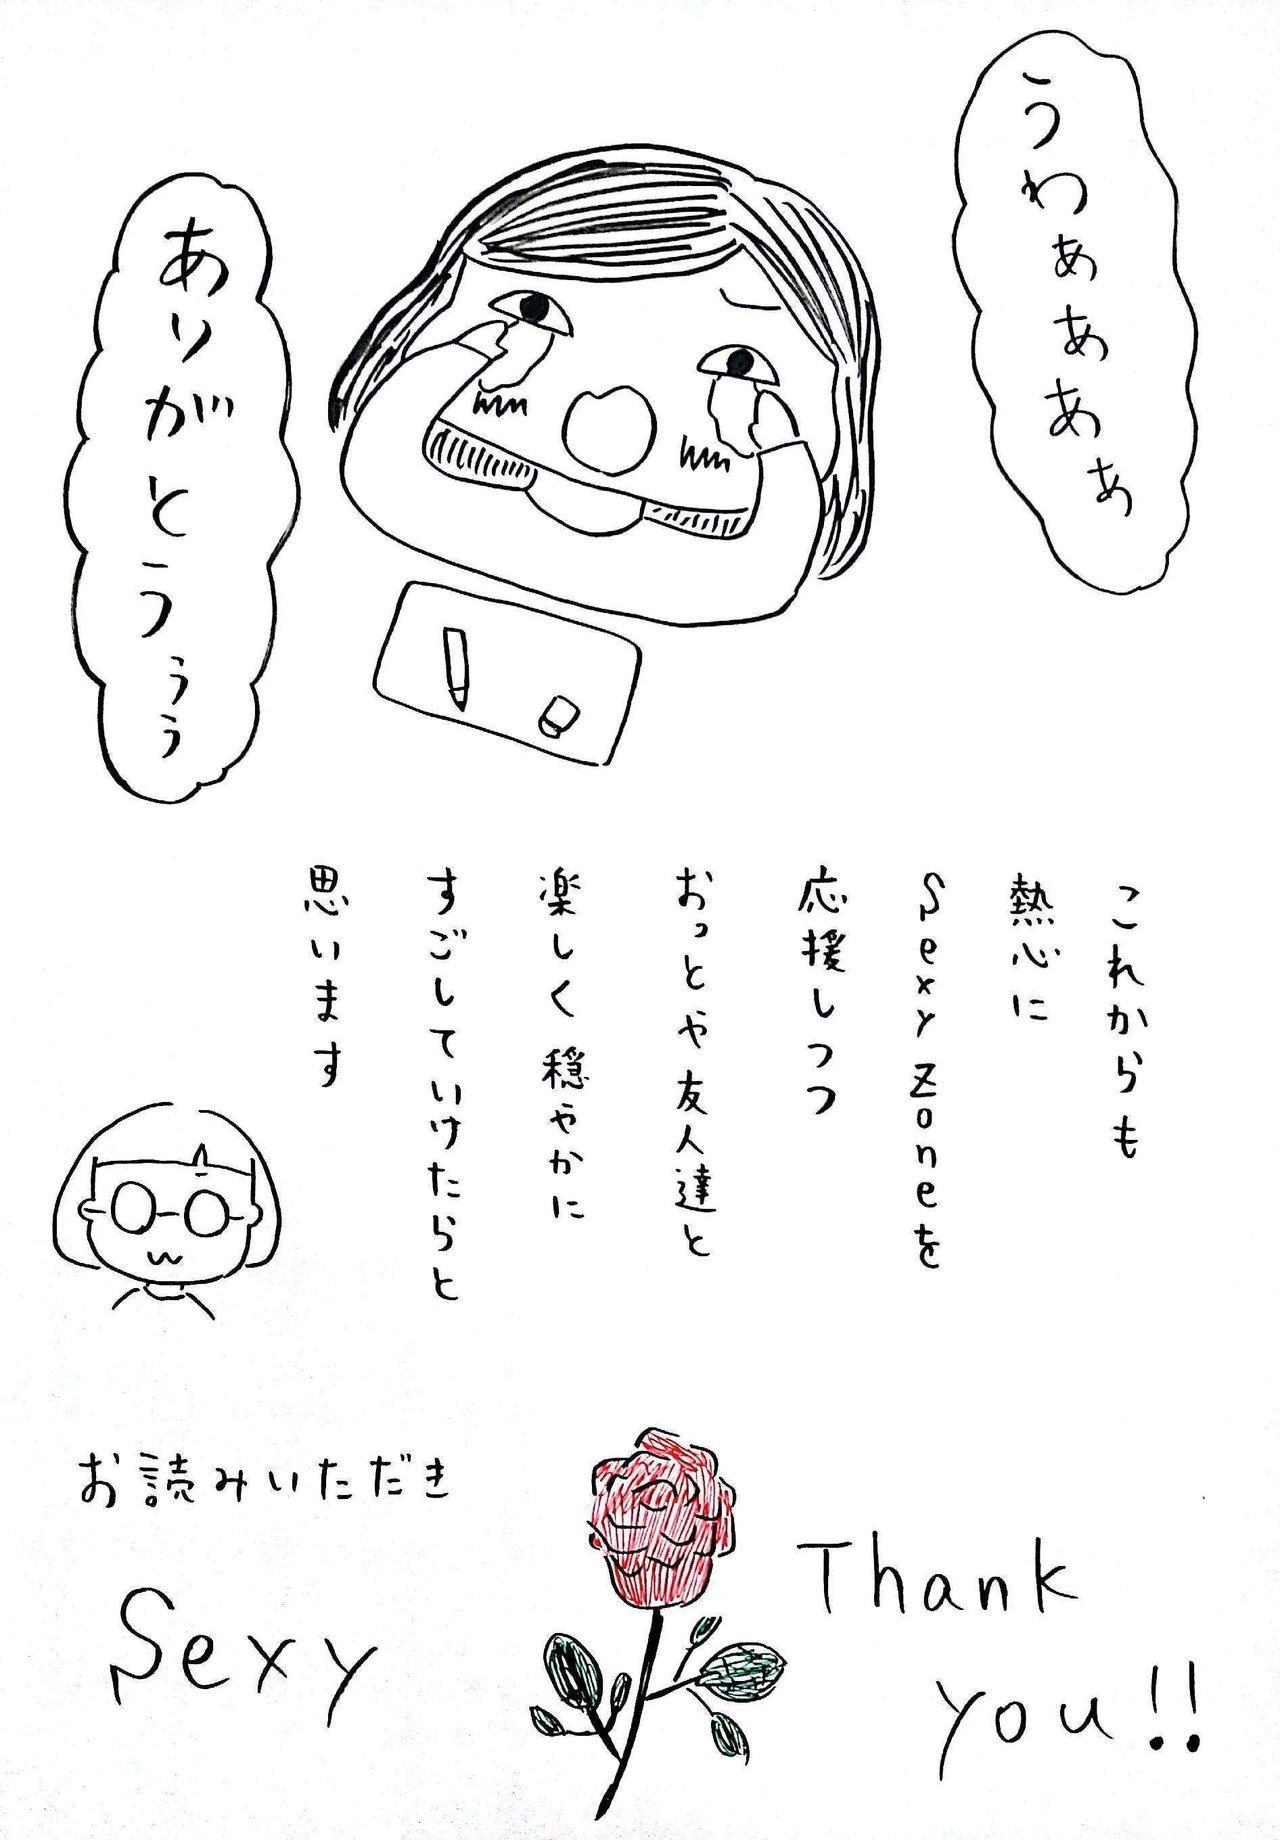 うわぁあああぁ
ありがとうぅぅ
これからも
熱心に
Sexy Zoneを
応援しつつ
おっとや友人達と
楽しく穏やかに
すごしていけたらと
思います
お読みいただき
Sexy
Thank
you!!